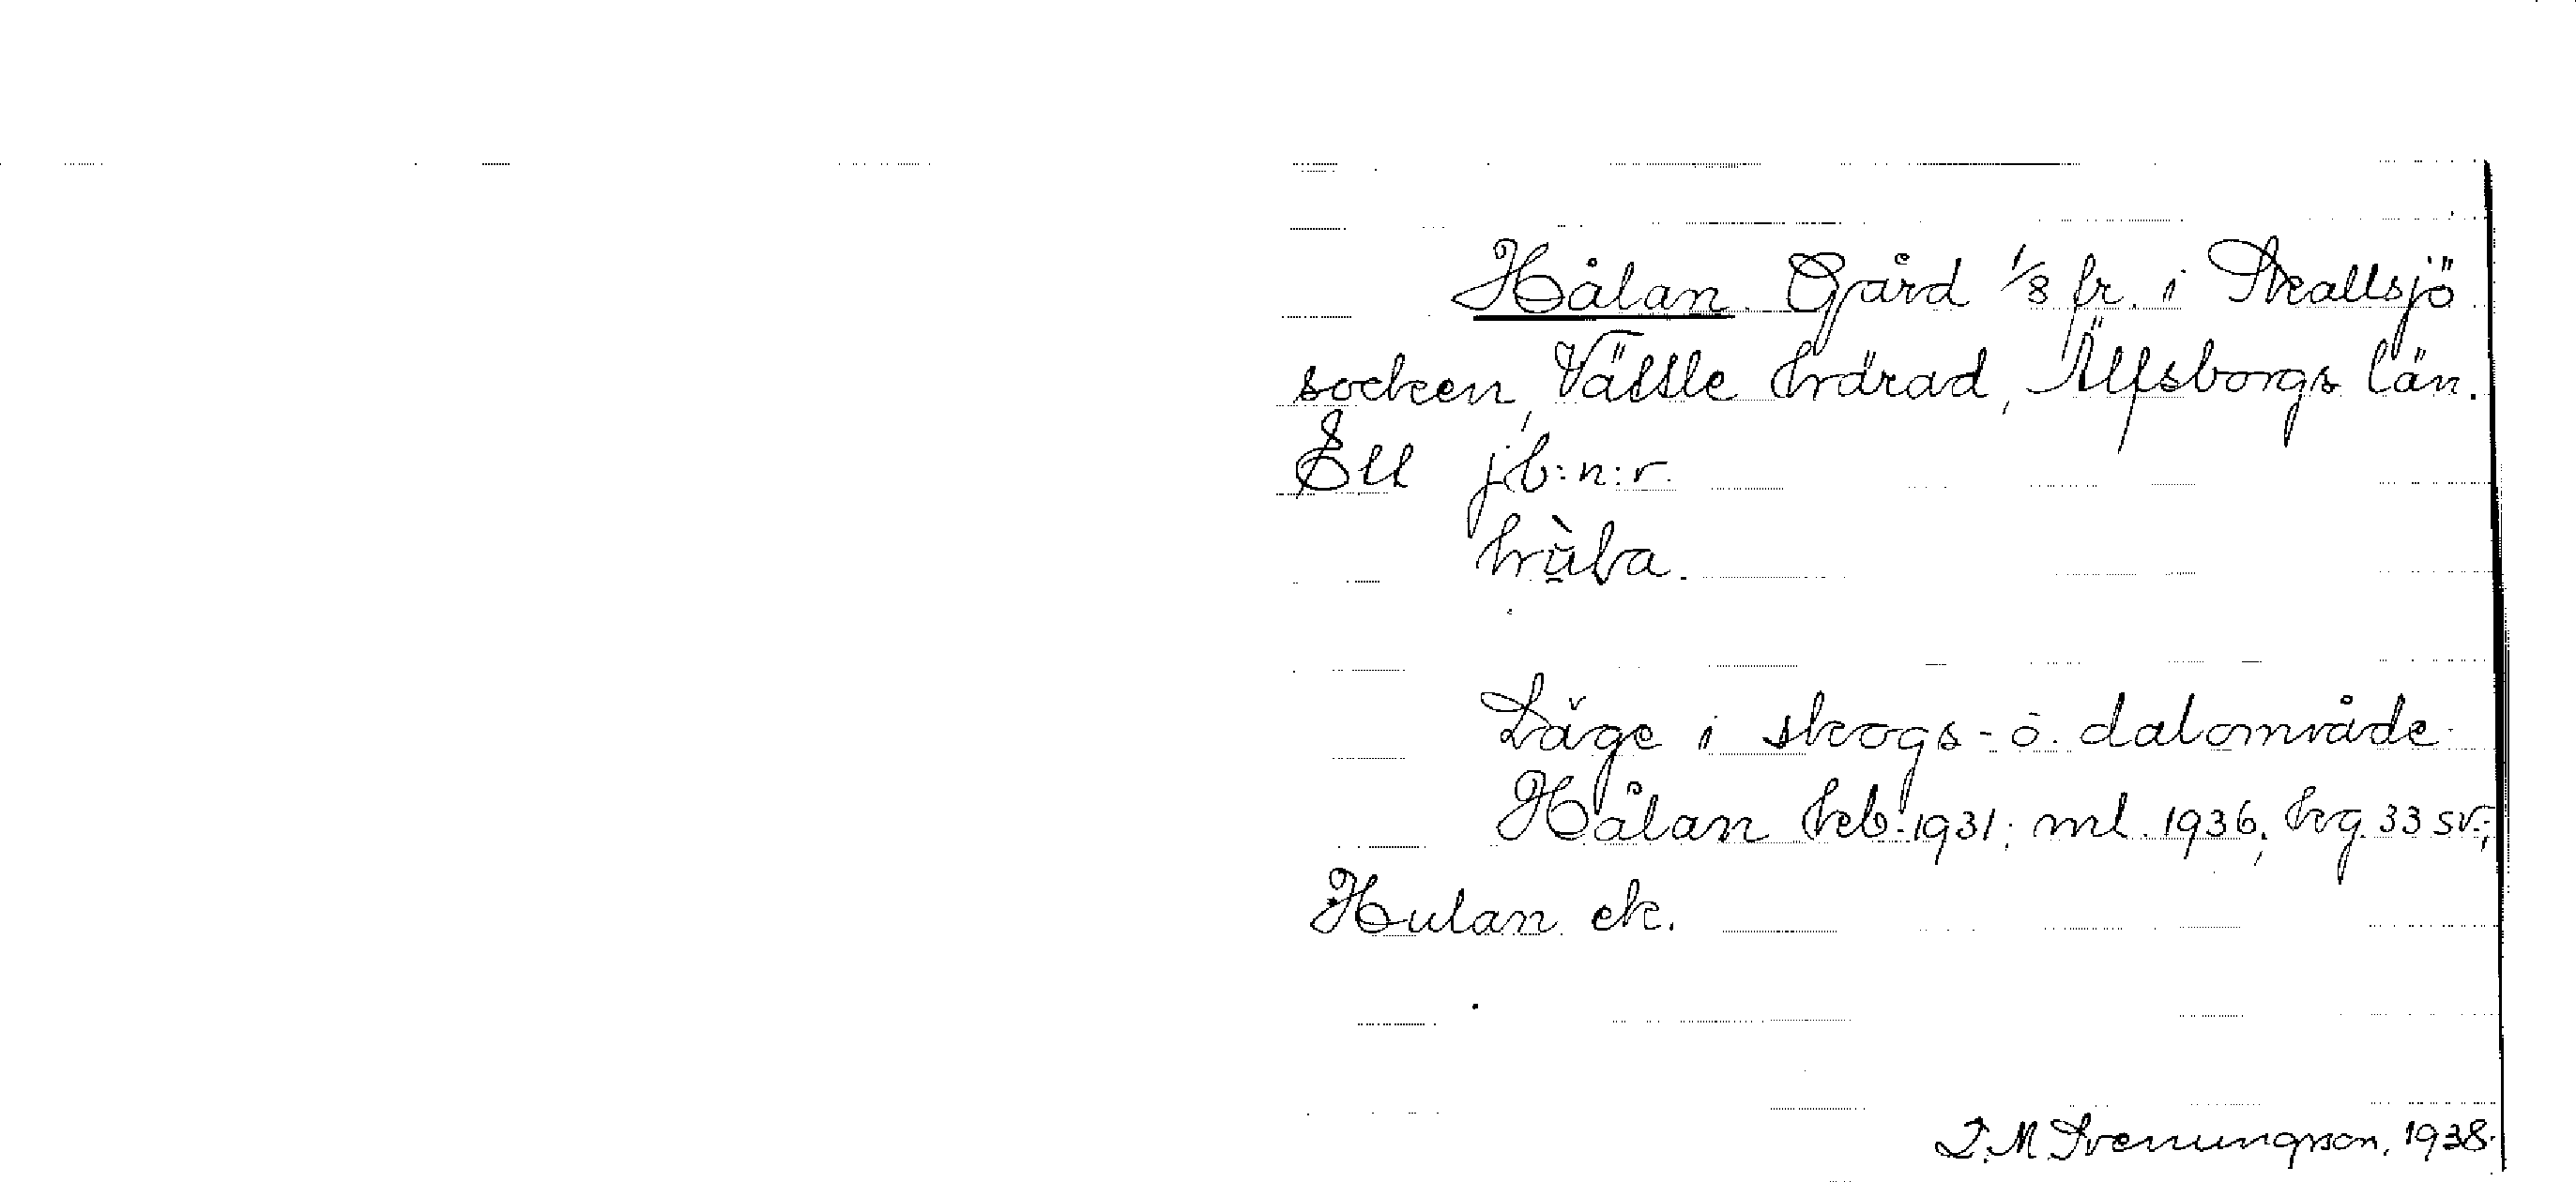 Hålan. Gård 1/8 fr. i Skallsjö
socken, Vättle härad, Älfsborgs län.
Ett jb:n:r.
Läge i skogs- o. dalområde.
Hålan keb. 1931; ml. 1936, kg. 33 sv.;
Hulan ek.
T. M. Svenungsson, 1938.